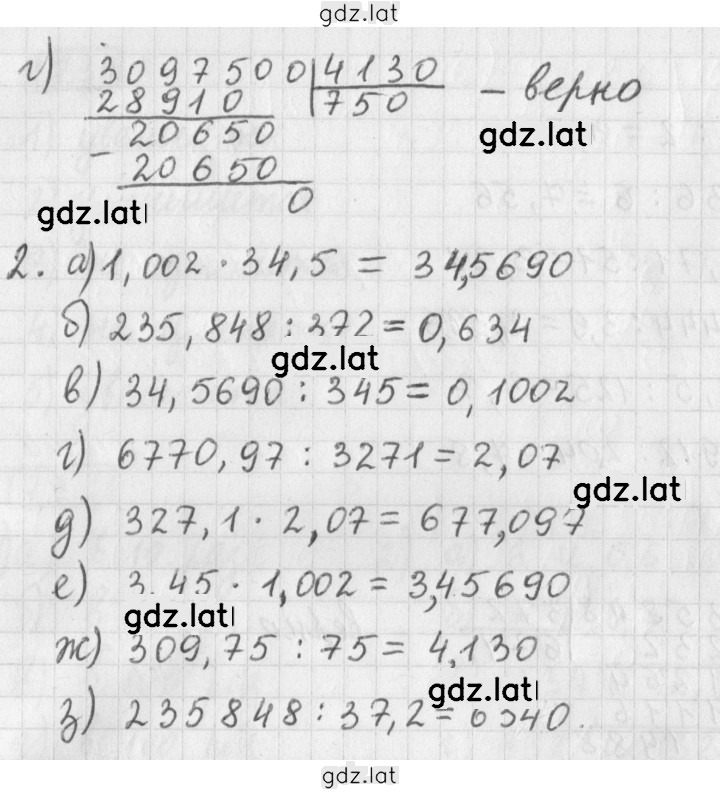 gdz.lat
г) 3097500 4130
28910 750 - верно
gdz.lat
- 20650
20650
gdz.lat 0
2. а) 1,002 · 34,5 = 34,5690
б) 235,848 : 372 = 0,634
gdz.lat
в) 34,5690 : 345 = 0,1002
г) 6770,97 : 3271 = 2,07
gdz.lat
д) 327,1 · 2,07 = 677,097
е) 3,45 · 1,002 = 3,45690
gdz.lat
ж) 309,75 : 75 = 4,130
gdz.lat
з) 235848 : 37,2 = 6340.
gdz.lat